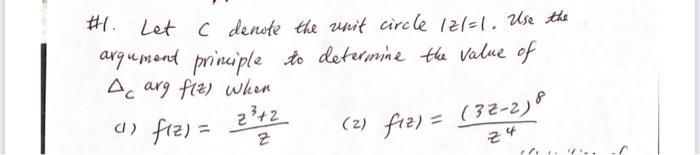 #1. Let C denote the unit circle |z|=1. Use the
argument principle to determine the value of
Δ_C arg f(z) when
(1) f(z) = (z³+2)/z (2) f(z) = (3z-2)⁸/z⁴